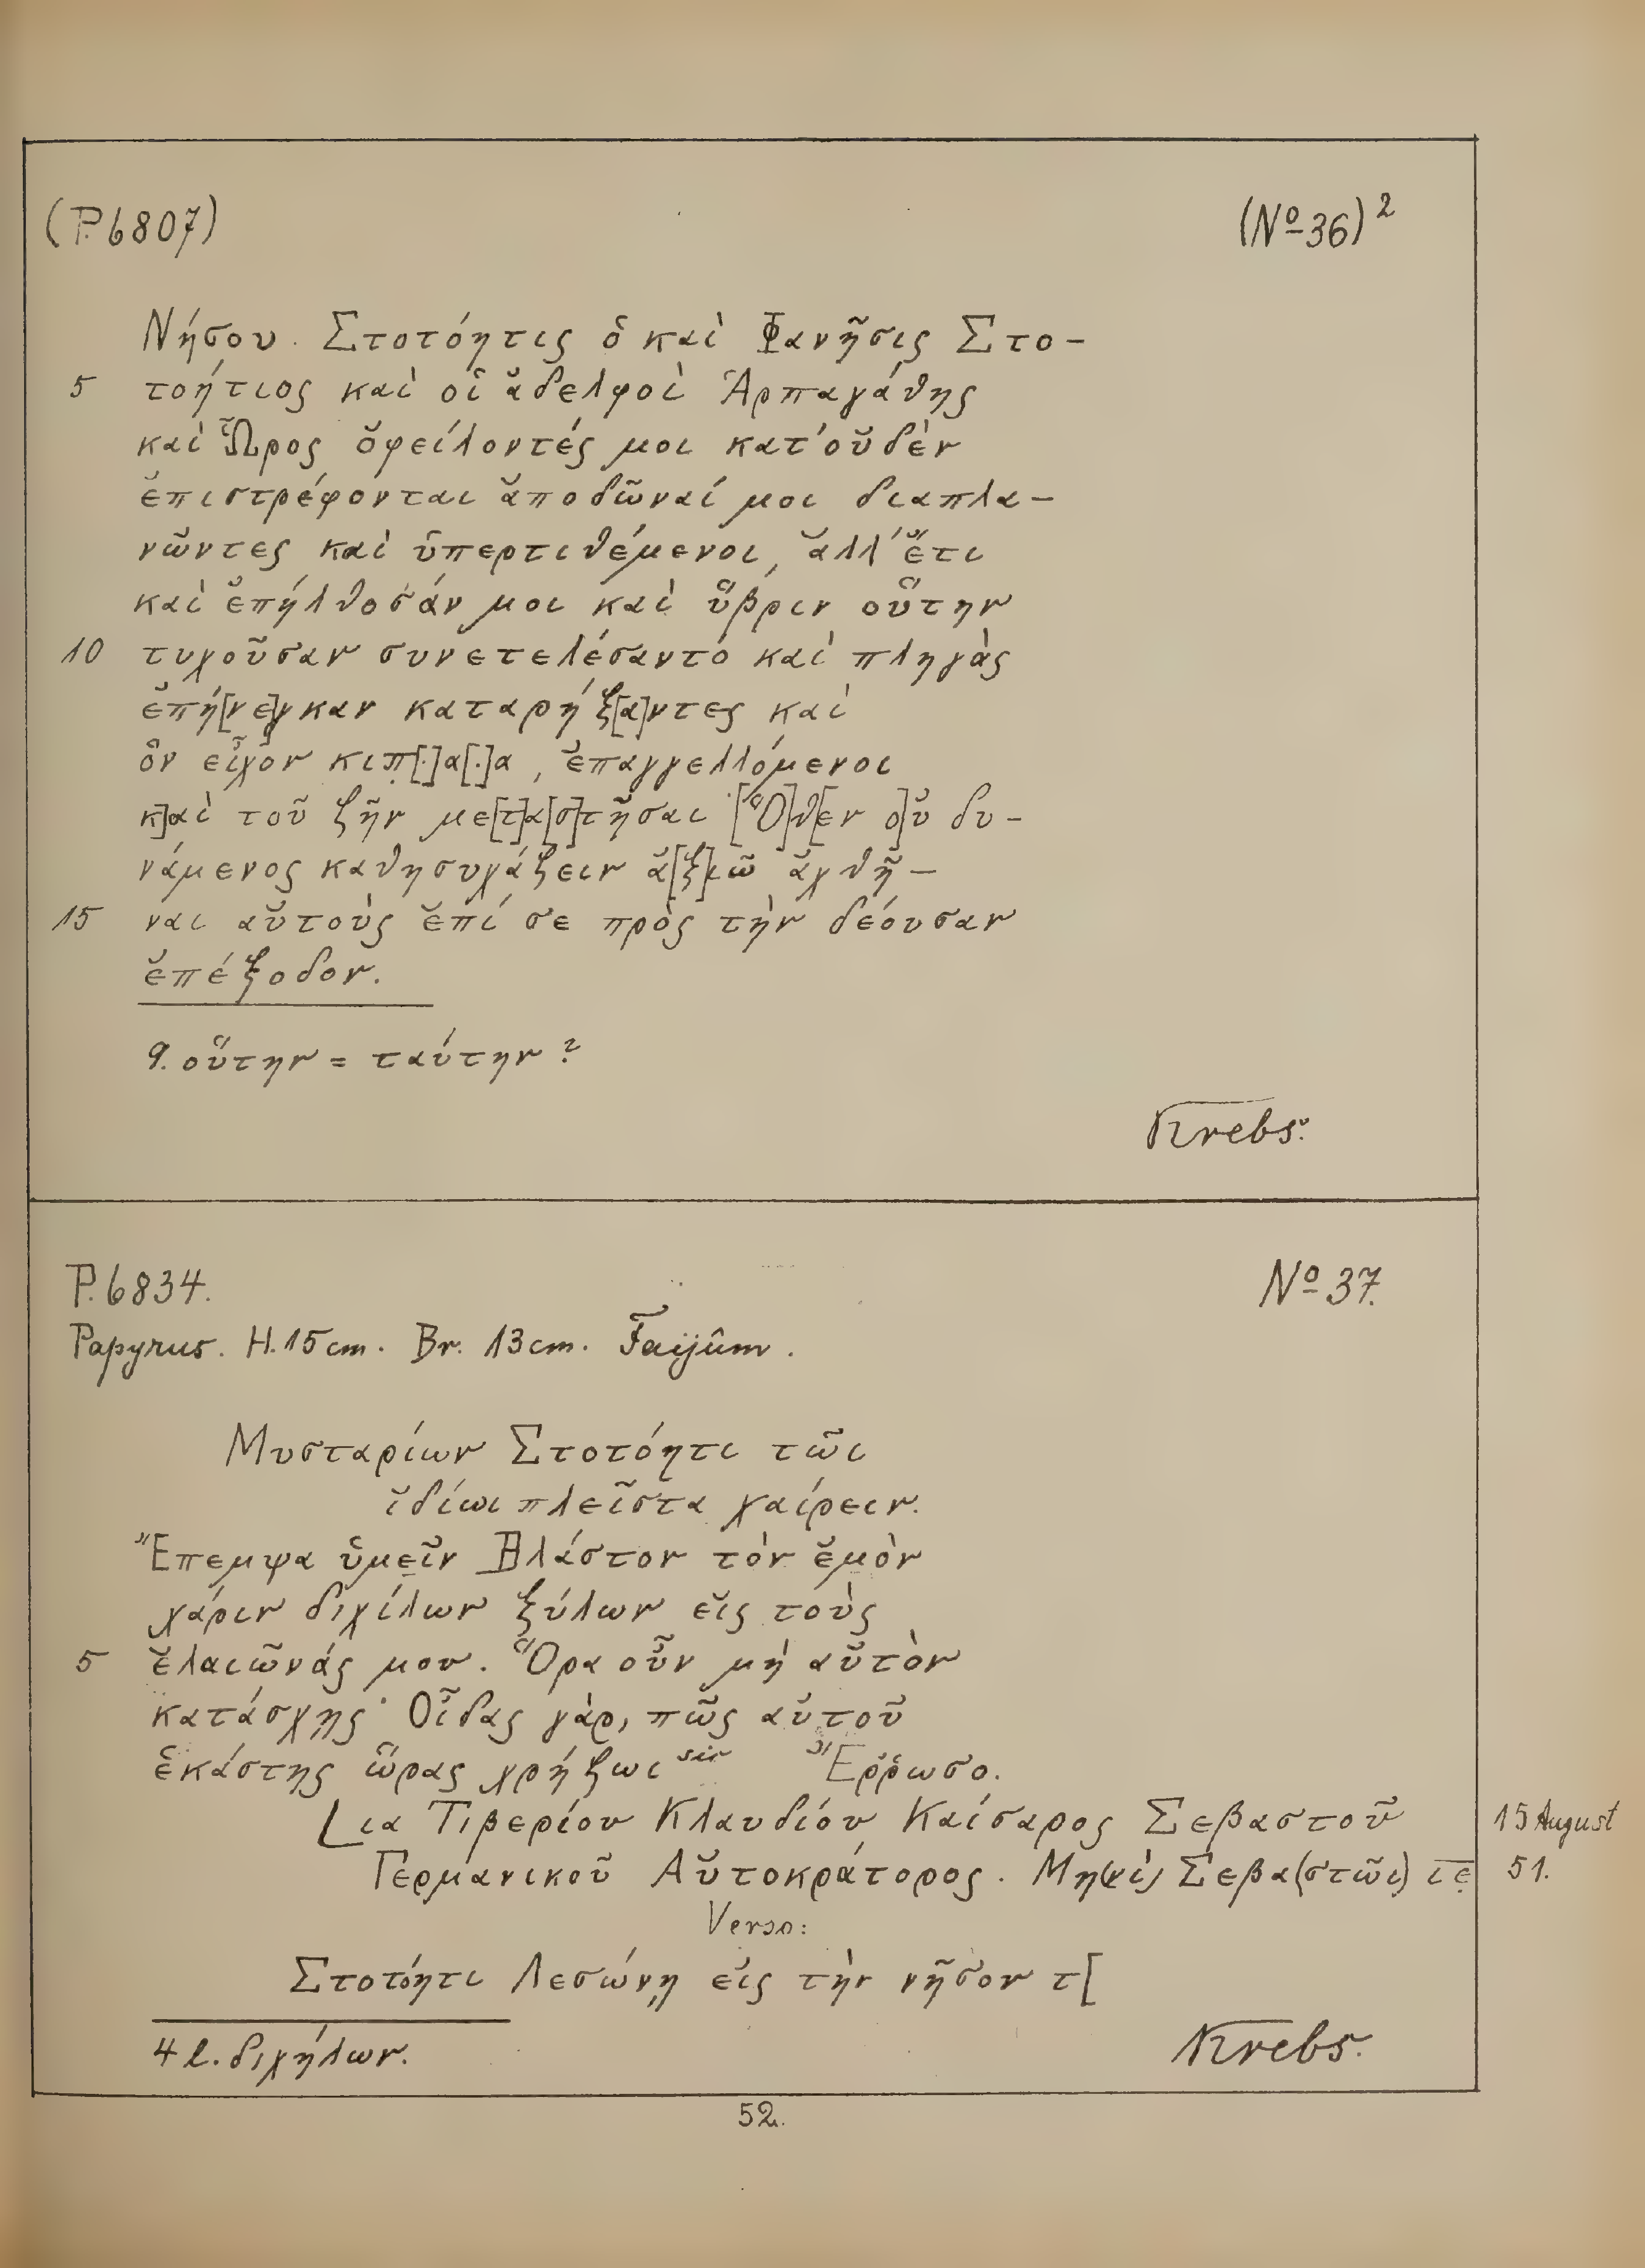 (P. 6807) (No 36)²
Νήσου. Στοτόητις ὁ καὶ Φανῆσις Στο-
5 τοήτιος καὶ οἱ ἀδελφοὶ Ἁρπαγάθης
καὶ Ὧρος ὀφείλοντές μοι κατ' οὐδὲν
ἐπιστρέφονται ἀποδῶναί μοι διαπλα-
νῶντες καὶ ὑπερτιθέμενοι, ἀλλ' ἔτι
καὶ ἐπήλθοσάν μοι καὶ ὕβριν οὕτην
10 τυχοῦσαν συνετελέσαντο καὶ πληγὰς
ἐπή[νε]γκαν καταρήξ[α]ντες καὶ
ὃν εἶχον κιπ[.]α[.]α, ἐπαγγελλόμενοι
κ]αὶ τοῦ ζῆν με[τ]α[σ]τῆσαι [Ὅ]θ[εν ο]ὐ δυ-
νάμενος καθησυχάζειν ἀ[ξ]ιῶ ἀχθῆ-
15 ναι αὐτοὺς ἐπί σε πρὸς τὴν δέουσαν
ἐπέξοδον.
9. οὕτην = ταύτην?
Krebs.
P. 6834. No 37.
Papyrus. H. 15 cm. Br. 13 cm. Faijûm.
Μυσταρίων Στοτόητι τῶι
ἰδίωι πλεῖστα χαίρειν.
Ἔπεμψα ὑμεῖν Βλάστον τὸν ἐμὸν
χάριν διχίλων ξύλων εἰς τοὺς
5 ἐλαιῶνάς μου. Ὅρα οὖν μὴ αὐτὸν
κατάσχῃς· Οἶδας γάρ, πῶς αὐτοῦ
ἑκάστης ὥρας χρήζωι sic Ἔρρωσο.
L ια Τιβερίου Κλαυδίου Καίσαρος Σεβαστοῦ 15 August
Γερμανικοῦ Αὐτοκράτορος. Μη(νὶ) Σεβα(στῶι) ιε 51.
Verso:
Στοτόητι Λεσώνῃ εἰς τὴν νῆσον τ[
4 l. διχήλων.
Krebs.
52.